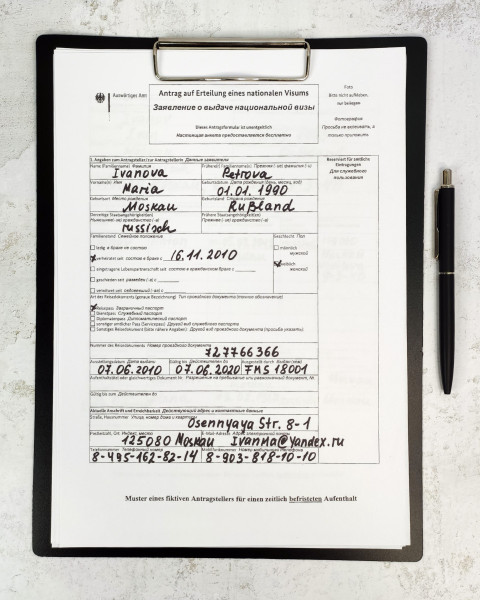 Auswärtiges Amt
Antrag auf Erteilung eines nationalen Visums
Заявление о выдаче национальной визы
Dieses Antragsformular ist unentgeltlich
Настоящая анкета предоставляется бесплатно
Foto
Bitte nicht aufkleben,
nur beilegen
Фотография
Просьба не вклеивать, а
только приложить
1. Angaben zum Antragsteller/zur Antragstellerin Данные заявителя
Reserviert für amtliche
Eintragungen
Для служебного
пользования
Name (Familienname) Фамилия
Ivanova
Petrova
Vorname(n) Имя
Geburtsdatum Дата рождения (день, месяц, год)
Maria
01.01.1990
Geburtsort Место рождения
Geburtsland Страна рождения
Moskau
Rußland
russisch
Familienstand Семейное положение
Geschlecht Пол
ledig в браке не состою
männlich
мужской
verheiratet seit состою в браке с 16.11.2010
weiblich
женский
eingetragene Lebenspartnerschaft seit состою в гражданском браке с
geschieden seit разведён (-а) с
verwitwet seit вдовевший (-ая) с
Art des Reisedokuments (genaue Bezeichnung) Тип проездного документа (точное обозначение)
Reisepass Заграничный паспорт
Dienstpass Служебный паспорт
Diplomatenpass Дипломатический паспорт
sonstiger amtlicher Pass (Servicepass) Другой вид служебного паспорта
Sonstiges Reisedokument (bitte nähere Angaben) Другой вид проездного документа (просьба указать)
Nummer des Reisedokuments Номер проездного документа
727766366
Ausstellungsdatum Дата выдачи
Gültig bis Действителен до
07.06.2010
07.06.2020
FMS 18001
Gültig bis Действителен до
Aktuelle Anschrift und Erreichbarkeit Действующий адрес и контактные данные
Straße, Hausnummer Улица, номер дома и квартиры
Osennyaya Str. 8-1
Postleitzahl, Ort Индекс, место
E-Mail-Adresse Адрес электронной почты
125080 Moskau
Ivanma@yandex.ru
Telefonnummer Телефонный номер
Mobilfunknummer Номер мобильного телефона
8-495-162-82-14
8-903-818-10-10
Muster eines fiktiven Antragstellers für einen zeitlich befristeten Aufenthalt